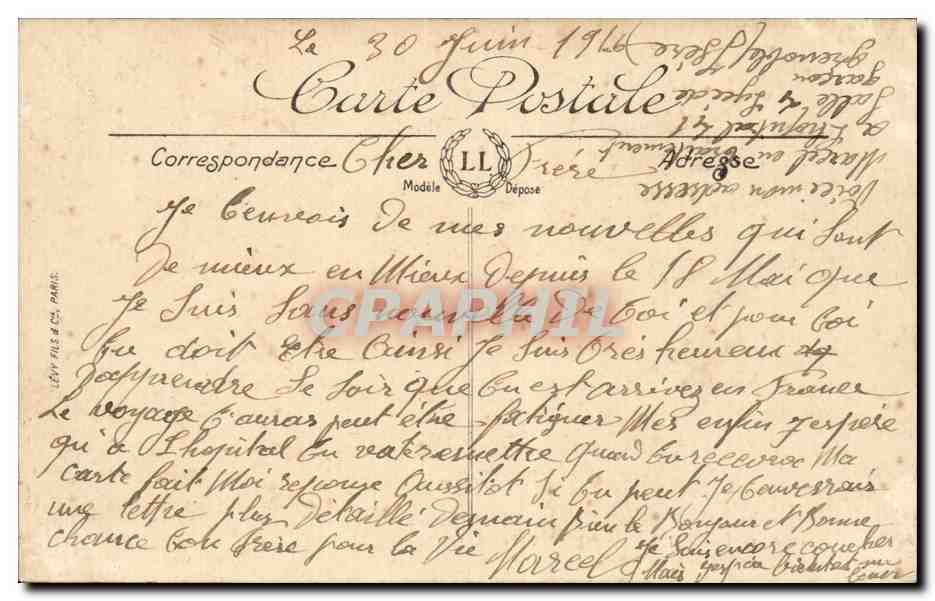 Le 30 Juin 19
Carte Postale
Correspondance
Cher Frère
LL
Modèle Déposé
Adresse
Voici mon adresse
Marcel en traitement
a L'hopital 41
Salle 4 Lycée de
garçon
grenoble (Isère)
Je t'envois de mes nouvelles qui sont
de mieux en Mieux depuis le 18 Mai que
Je suis sans nouvelle de toi et pour toi
tu doit etre ainsi Je suis très heureux
d'apprendre Se Soir que tu est arrivez en France
Le voyage t'auras peut être fatiguer Mes enfin J'espère
qu'a L'hopital tu va te remettre quand tu recevra Ma
carte fait Moi reponse Aussitot Si tu peut Je t'enverrais
une lettre plus détaillé demain Bien le Bonjour et Bonne
chance ton frère pour la Vie Marcel
Je suis encore coucher
Mais bientot me
lever
LÉVY FILS & Cie, PARIS.
CPAPHIL